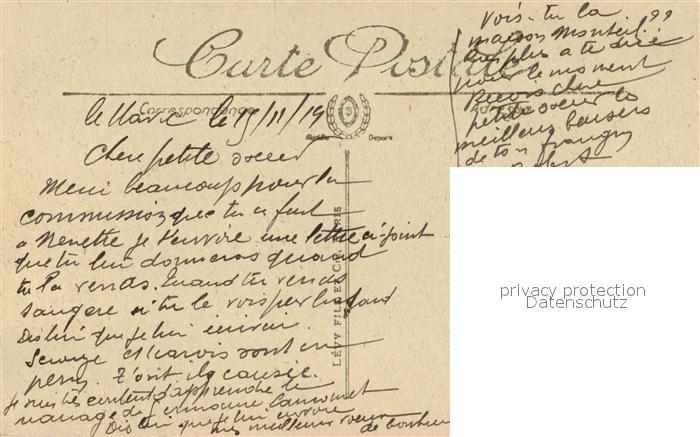 Carte Postale
Correspondance
le Havre le 15/11/19
Chere petite soeur
Merci beaucoup pour la
commission que tu a fait
a Nenette je t'envoie une lettre ci-joint
que tu lui donneras quand
tu la verds. Quand tu verds
si tu le vois par hasard
Dis lui que je lui écrirai.
sont en
perm. T'ont ils causée.
je suis tès content d'apprendre le
mariage de Germaine
Dis lui que je lui envoie
mes meilleur voeux
de bonheur
Vois-tu la
maison Monteil??
Rien plus a te dire
pour le moment
Recois chere
petite soeur les
meilleur baisers
de ton frangin
LÉVY FILS ET CIE, PARIS
privacy protection
Datenschutz